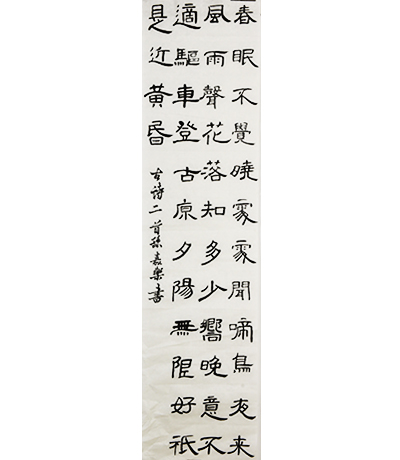 春眠不覺曉處處聞啼鳥夜来
風雨聲花落知多少嚮晚意不
適驅車登古原夕陽無限好祇
是近黃昏
古詩二首孫嘉樂書